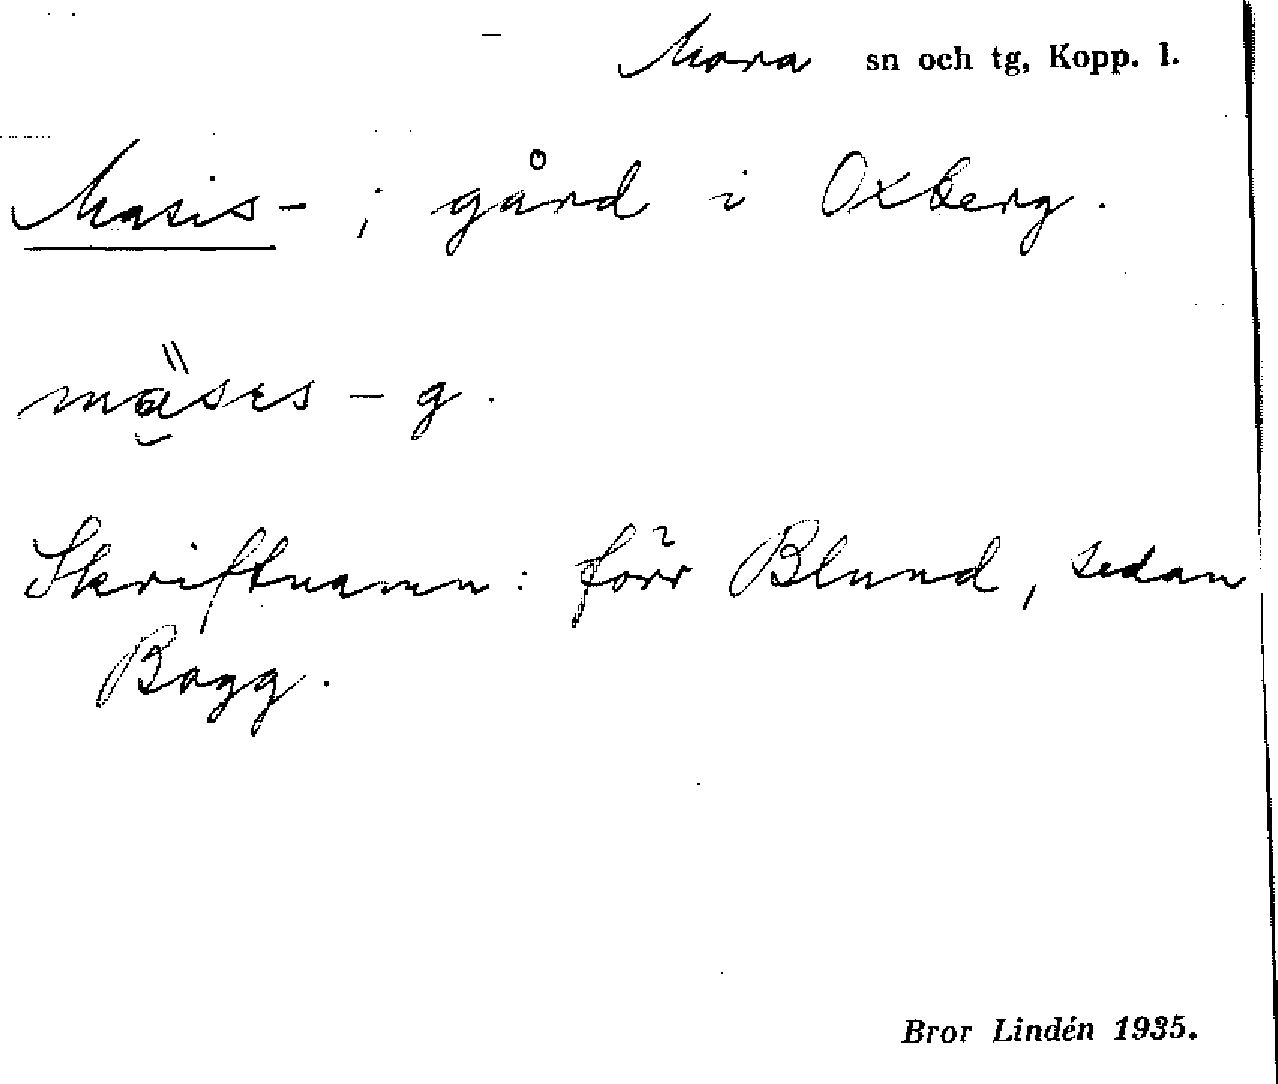 Mora sn och tg, Kopp. l.
Masis- ; gård i Oxberg.
mäses - g.
Skriftnamn: förr Blund, sedan
Bagg.
Bror Lindén 1935.